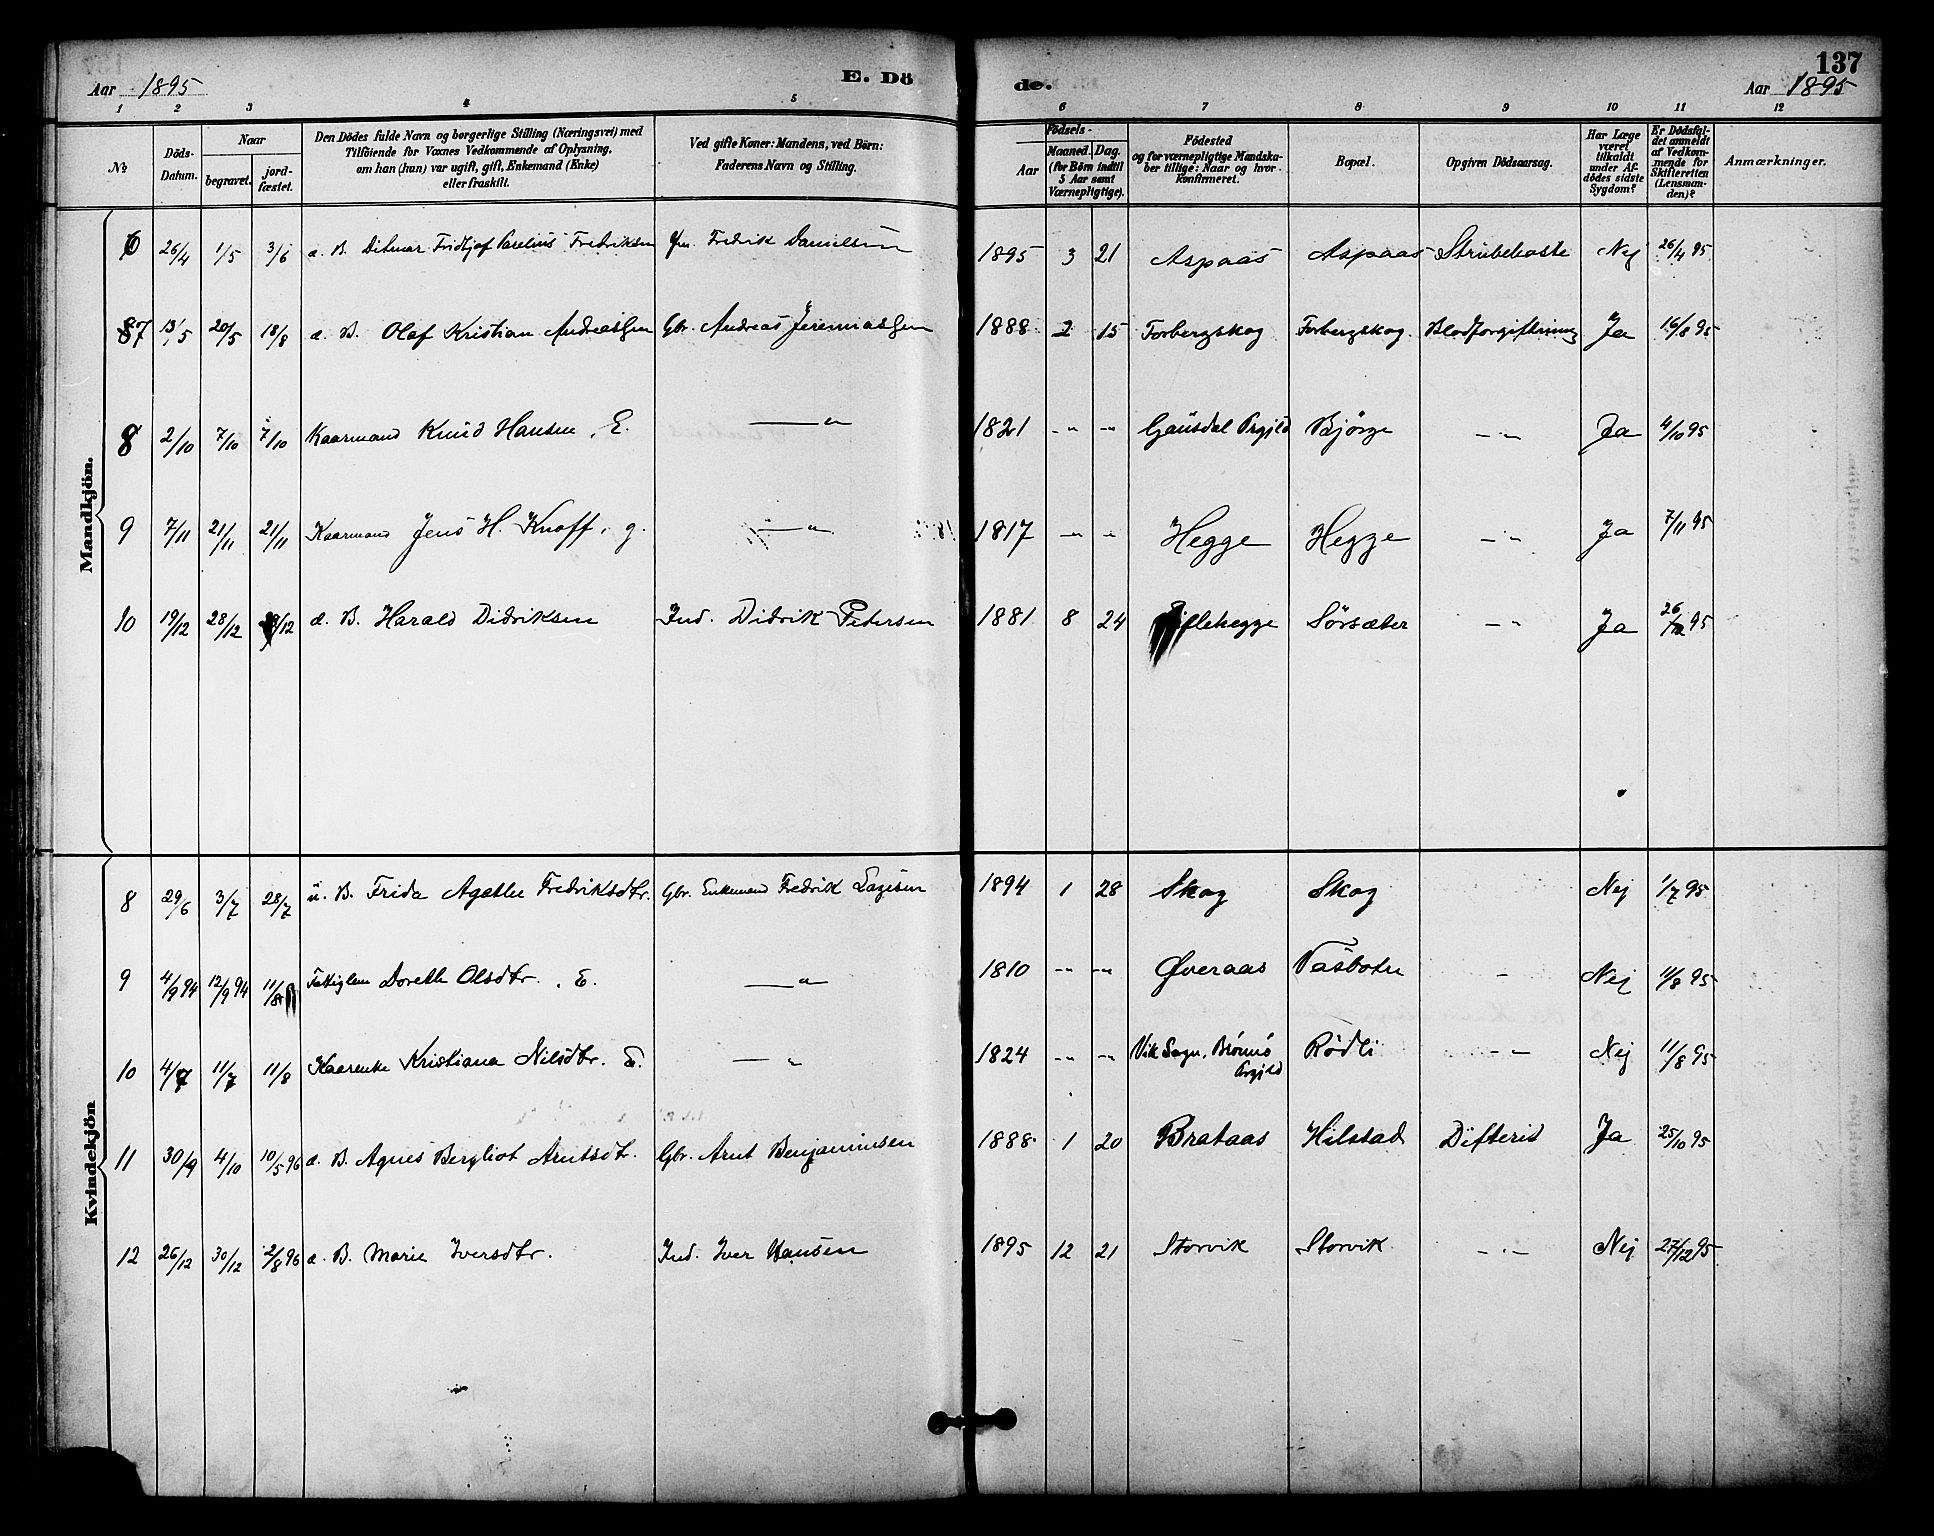 137
Aar 1895 E. Dö de. Aar 1895
1 2 3 4 5 6 7 8 9 10 11 12
№ Döds-Datum. Naar begravet. jord-fæstet. Den Dödes fulde Navn og borgerlige Stilling (Næringsvei) med Tilföiende for Voxnes Vedkommende af Oplysning, om han (hun) var ugift, gift, Enkemand (Enke) eller fraskilt. Ved gifte Koner: Mandens, ved Börn: Faderens Navn og Stilling. Födsels- Aar Maaned. Dag. (for Börn indtil 5 Aar samt Værnepligtige). Födested og for værnepligtige Mandskaber tillige: Naar og hvor Konfirmeret. Bopæl. Opgiven Dödsaarsag. Har Læge været tilkaldt under Afdödes sidste Sygdom? Er Dödsfaldet anmeldt af Vedkommende for Skifteretten (Lensmanden)? Anmærkninger.
Mandkjön.
6 26/4 1/5 3/6 æ. B. Ditmar Fridtjof Parelius Fredriksen Fredrik Danielsen 1895 3 21 Aspaas Aspaas Strubehoste Nej 26/4 95
7 13/5 20/5 18/8 æ. B. Olaf Kristian Andreassen Gbr. Andreas Jeremiassen 1888 2 15 Forbergskog Forbergskog Blodforgiftning Ja 16/8 95
8 2/10 7/10 7/10 Kaarmand Knud Hansen, E. —〃 1821 -〃- -〃- Gausdal Prgjld Bjørge -〃- Ja 4/10 95
9 7/11 21/11 21/11 Kaarmand Jens H. Knoff, g. —〃 1817 -〃- -〃- Hegge Hegge -〃- Ja 7/11 95
10 19/12 28/12 28/12 æ. B. Harald Didriksen Ind. Didrik Petersen 1881 8 24 Sørsæter -〃- Ja 26/12 95
Kvindekjön
8 29/6 3/7 28/7 u. B. Frida Agathe Fredriksdtr. Gbr. Enkemand Fredrik Lagesen 1894 1 28 Skog Skog Nej 1/7 95
9 4/9 94 12/9 94 11/8 Fattiglem Doreth Olsdtr., E. —〃 1810 -〃- -〃- Øveraas Vasbotn - Nej 11/8 95
10 4/7 11/7 11/8 Kaarenke Kristiana Nilsdtr. E. —〃 1824 -〃- -〃- Vik Sogn, Brønnø Prgjld Rødli -〃- Nej 11/8 95
11 30/9 4/10 10/5 96 æ. B. Agnes Bergliot Arntsdt. Gbr. Arnt Benjaminsen 1888 1 20 Brataas Hilstad Difterit Ja 25/10 95
12 26/12 30/12 2/8 96 æ. B. Marie Iversdtr. Ind. Iver Hansen 1895 12 21 Storvik Storvik -〃- Nej 27/12 95